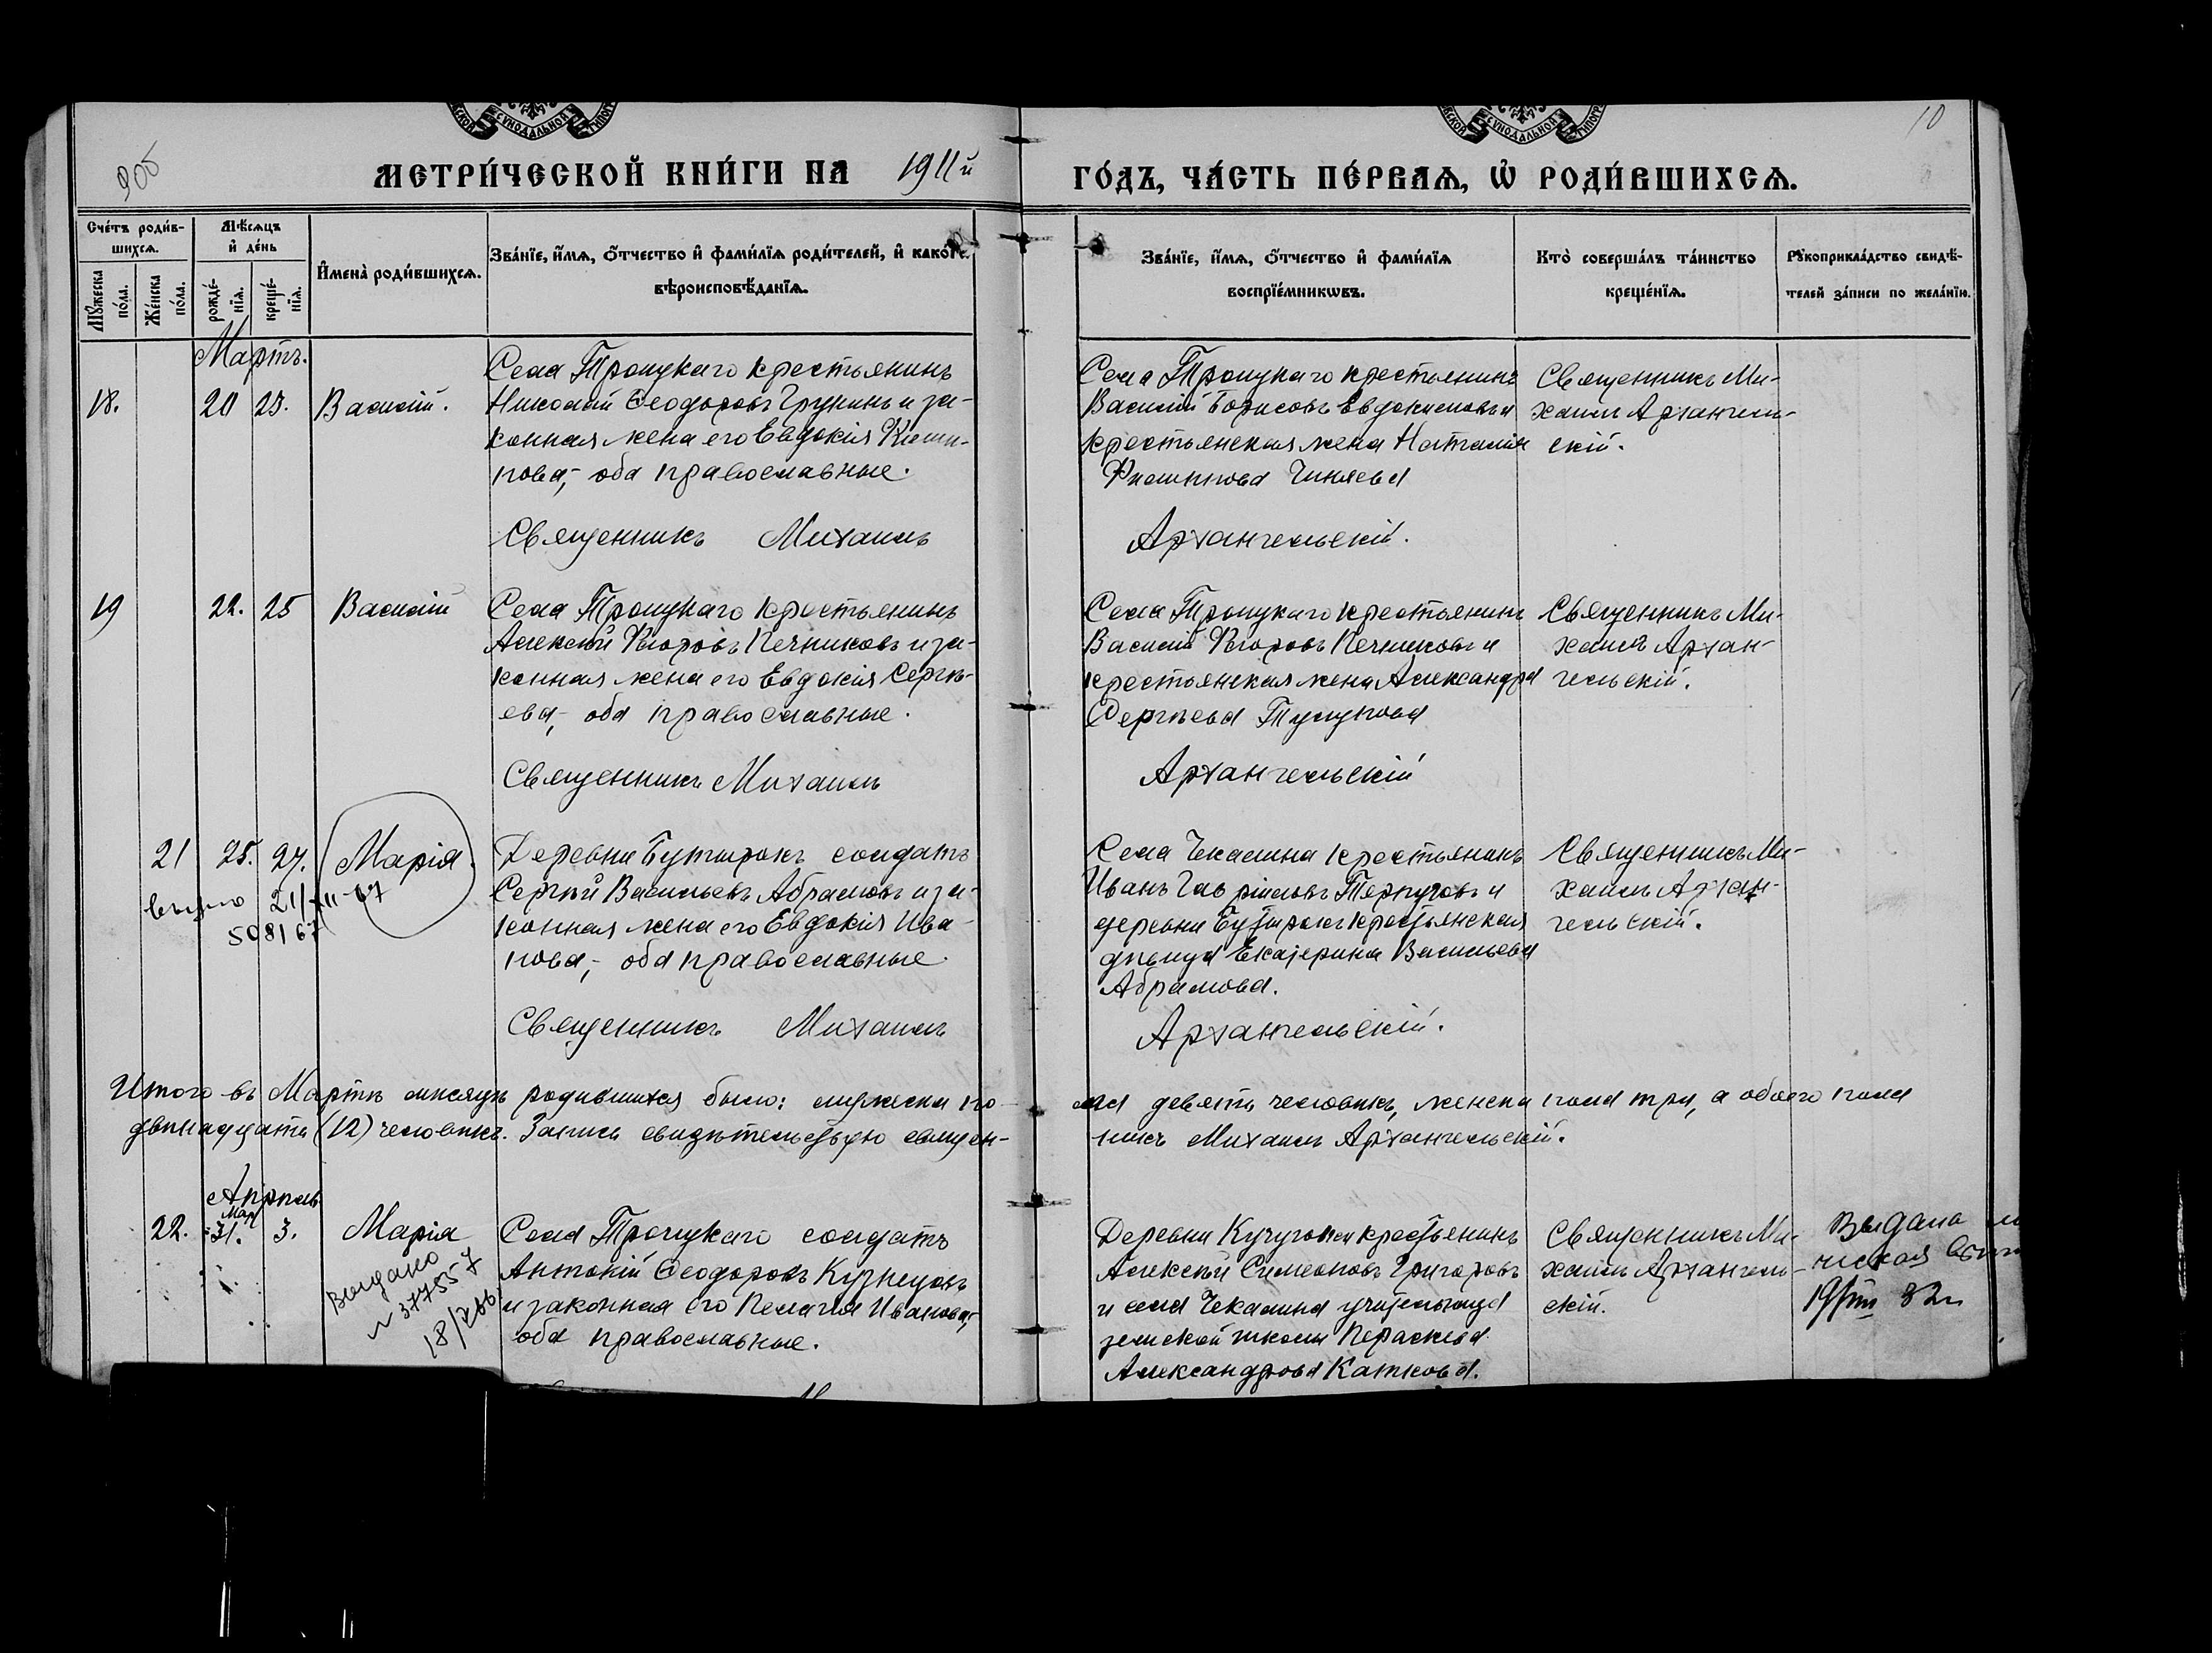 СѴНОДАЛЬНОЙ
СѴНОДАЛЬНОЙ
10
МЕТРИ́ЧЕСКОЙ КНИ́ГИ НА 1911й
ГО́ДЪ, ЧА́СТЬ ПЕ́РВАЯ, Ѡ҆ РОДИ́ВШИХСЯ.
Сче́тъ роди́в-
шихся.
Мꙋ́жеска по́ла.
Же́нска по́ла.
Мѣ́сяцъ
и҆ де́нь
рожде́-
нїя.
креще́-
нїя.
И҆мена̀ роди́вшихся.
Зва́нїе, и҆́мя, ѻ҆́тчество и҆ фами́лїя роди́телей, и҆ како́гѡ
вѣроисповѣ́данїя.
Зва́нїе, и҆́мя, ѻ҆́тчество и҆ фами́лїя
воспрїе́мникѡвъ.
Кто̀ соверша́лъ та́инство
креще́нїя.
Рꙋкоприкла́дство свидѣ́-
телей за́писи по жела́нїю.
Мартъ.
18.
20
23.
Василій.
Села Троицкаго крестьянинъ
Николай Ѳеодоровъ Грунинъ и за-
конная жена его Евдокія
пова, оба православные.
Священникъ Михаилъ
Села Троицкаго крестьянинъ
Василій Борисовъ Евдокимовъ и
крестьянская жена Наталія
Филиппова Чиняева
Архангельскій.
Священникъ Ми-
хаилъ Архангель-
скій.
19
22.
25
Василій
Села Троицкаго крестьянинъ
Алексѣй Ѳеоровъ Печниковъ и за-
конная жена его Евдокія Сергѣ-
ева, оба православные.
Священникъ Михаилъ
Села Троицкаго крестьянинъ
Василій Ѳеоровъ Печниковъ и
крестьянская жена Александра
Сергѣева
Архангельскій
Священникъ Ми-
хаилъ Архан-
гельскій.
21
25.
27.
Марія.
21/XII-67
508167
Деревни Бутырокъ солдатъ
Сергѣй Васильевъ Абрамовъ и за-
конная жена его Евдокія Ива-
нова, оба православные.
Священникъ Михаилъ
Села Чекалина крестьянинъ
Иванъ Гавріиловъ и
деревни Бутырокъ крестьянская
дѣвица Екатерина Васильева
Абрамова.
Архангельскій.
Священникъ Ми-
хаилъ Архан-
гельскій.
Итого въ Мартѣ мѣсяцѣ родившихся было: мужеска по-
ла девять человѣкъ, женска пола три, а обоего пола
двѣнадцать (12) человѣкъ. Запись свидѣтельствую священ-
никъ Михаилъ Архангельскій.
Апрѣль
22.
Мар
31.
3.
Марія
Выдано
№ 377557
Села Троицкаго солдатъ
Антоній Ѳеодоровъ Кузнецовъ
и законная его Пелагія Иванова,
оба православные.
Деревни Кучуговки крестьянинъ
Алексѣй Симеоновъ Григоровъ
и села Чекалина учительница
земской школы Параскева
Александрова Каткова.
Священникъ Ми-
хаилъ Архангель-
скій.
Выдана
19/VIII 82г